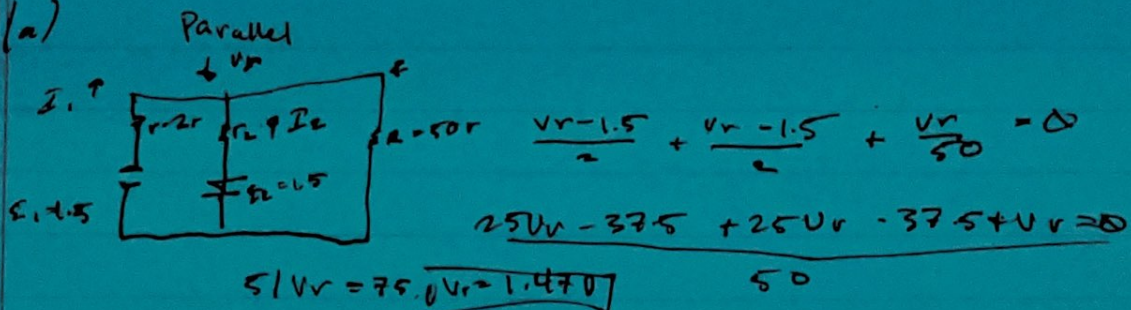 (a)
Parallel
↓ Vr
I₁ ↑
r=2r
r₂ ↑ I₂
R=50r
Vr-1.5/2 + Vr-1.5/2 + Vr/50 = 0
ε₂=1.5
25Vr - 37.5 + 25Vr - 37.5 + Vr = 0
50
51Vr = 75.0 Vr = 1.470